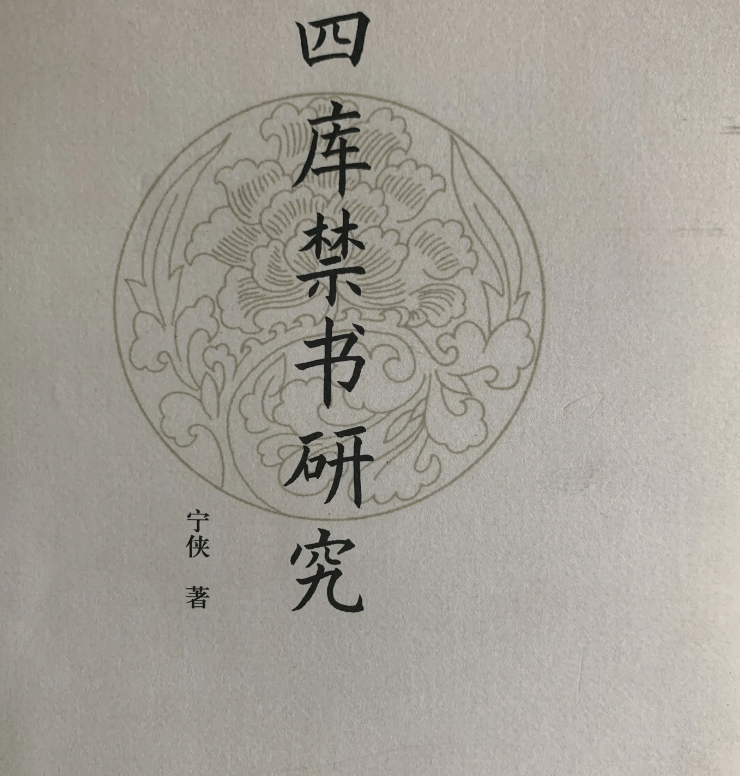 四库禁书研究
宁侠 著